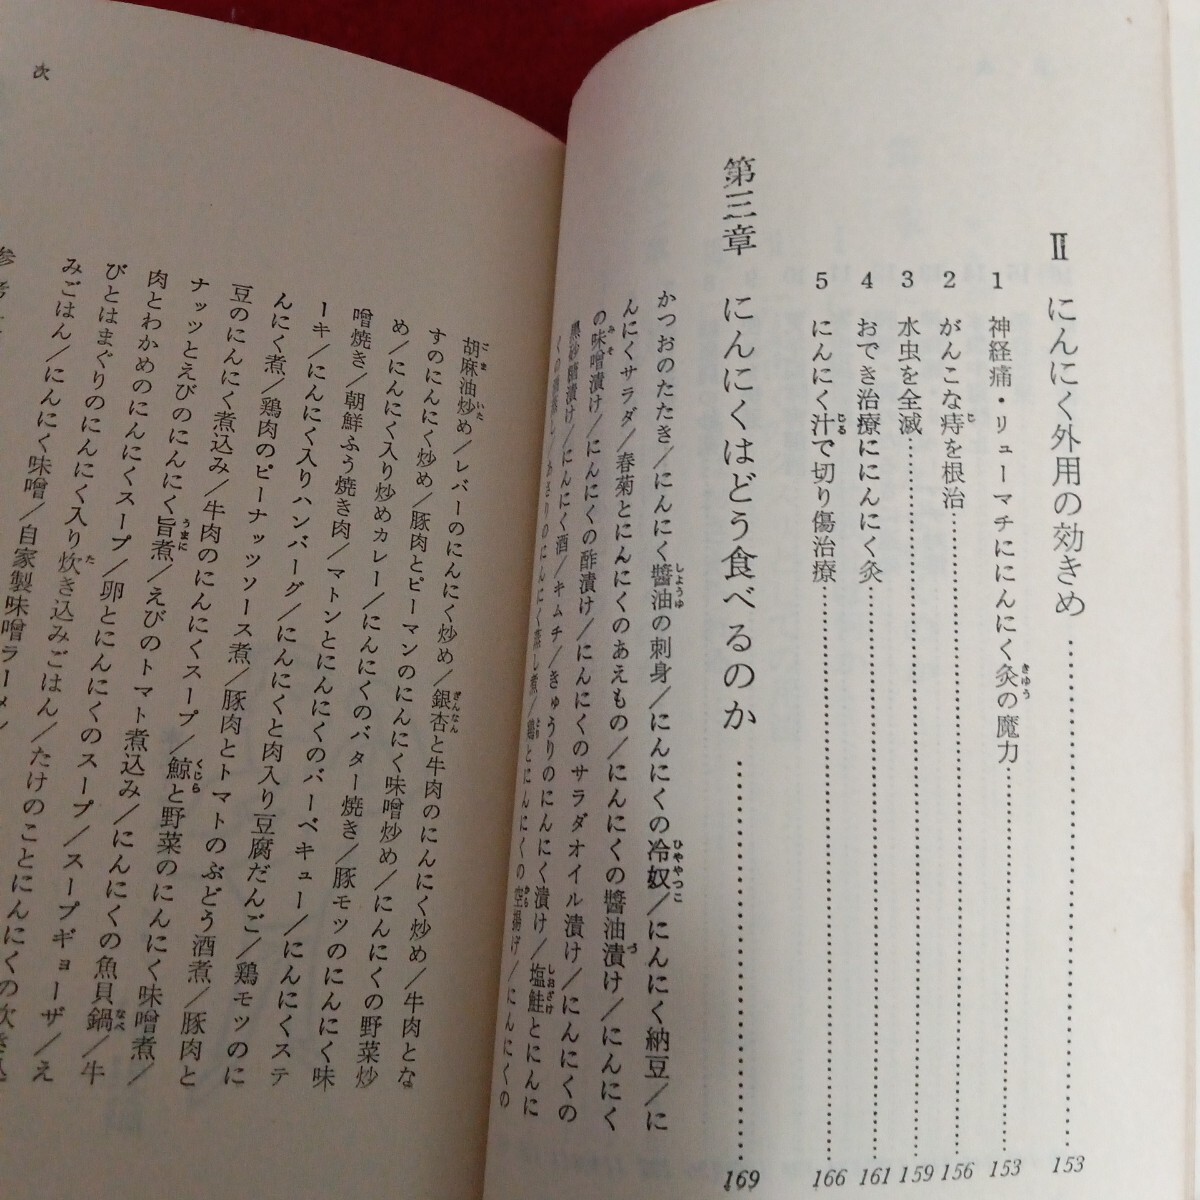 II にんにく外用の効きめ……153
1 神経痛・リューマチににんにく灸の魔力……153
2 がんこな痔を根治……156
3 水虫を全滅……159
4 おでき治療ににんにく灸……161
5 にんにく汁で切り傷治療……166
第三章 にんにくはどう食べるのか……169
かつおのたたき/にんにく醬油の刺身/にんにくの冷奴/にんにく納豆/に
んにくサラダ/春菊とにんにくのあえもの/にんにくの醬油漬け/にんにく
の味噌漬け/にんにくの酢漬け/にんにくのサラダオイル漬け/にんにくの
黒砂糖漬け/にんにく酒/キムチ/きゅうりのにんにく漬け/塩鮭とにんに
くの/あさりのにんにく蒸し煮/鶏とにんにくの空揚げ/にんにくの
次
胡麻油炒め/レバーのにんにく炒め/銀杏と牛肉のにんにく炒め/牛肉とな
すのにんにく炒め/豚肉とピーマンのにんにく味噌炒め/にんにくの野菜炒
め/にんにく入り炒めカレー/にんにくのバター焼き/豚モツのにんにく味
噌焼き/朝鮮ふう焼き肉/マトンとにんにくのバーベキュー/にんにくステ
ーキ/にんにく入りハンバーグ/にんにくと肉入り豆腐だんご/鶏モツのに
んにく煮/鶏肉のピーナッツソース煮/豚肉とトマトのぶどう酒煮/豚肉と
豆のにんにく煮込み/牛肉のにんにくスープ/鯨と野菜のにんにく味噌煮/
ナッツとえびのにんにく旨煮/えびのトマト煮込み/にんにくの魚貝鍋/牛
肉とわかめのにんにくスープ/卵とにんにくのスープ/スープギョーザ/え
びとはまぐりのにんにくスープ/にんにく入り炊き込みごはん/たけのことにんにくの炊き込
みごはん/にんにく味噌/自家製味噌ラーメン
参考